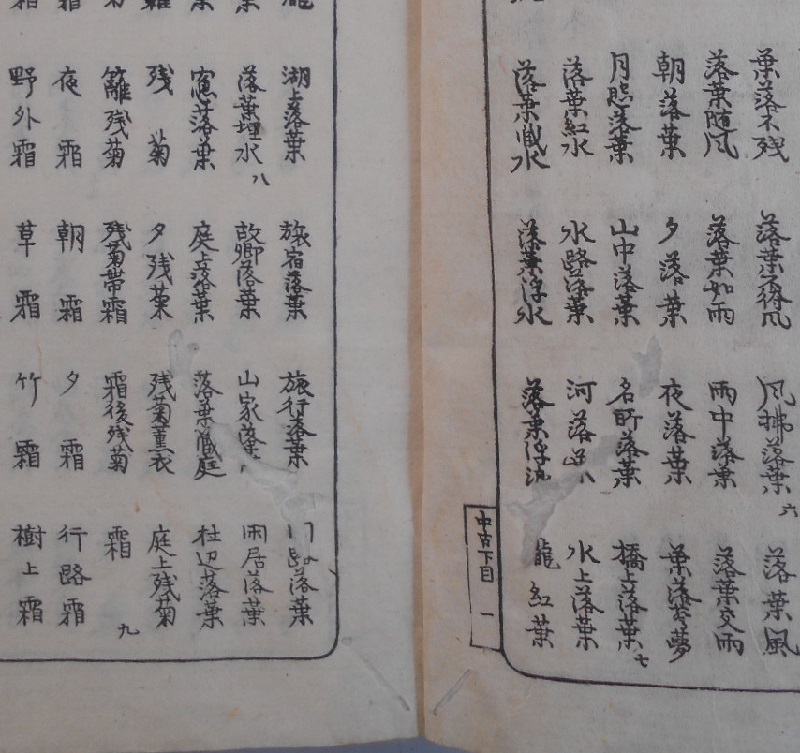 葉落不残 落葉不待風 風払落葉六 落葉風
落葉随風 落葉如雨 雨中落葉 落葉交雨
朝落葉 夕落葉 夜落葉 葉落答夢
月照落葉 山中落葉 名所落葉 橋上落葉七
落葉紅水 水路落葉 河落葉八 水上落葉
落葉蔵水 落葉浮水 落葉浮流 瀧紅葉
中古下目 一
湖上落葉 旅宿落葉 旅行落葉 落葉
落葉埋水八 故郷落葉 山家落葉 閑居落葉
窓落葉 庭上落葉 落葉蔵庭 杜辺落葉
残菊 夕残菊 残菊薫衣 庭上残菊
籬残菊 残菊帯霜 霜後残菊 霜九
夜霜 朝霜 夕霜 行路霜
野外霜 草霜 竹霜 樹上霜